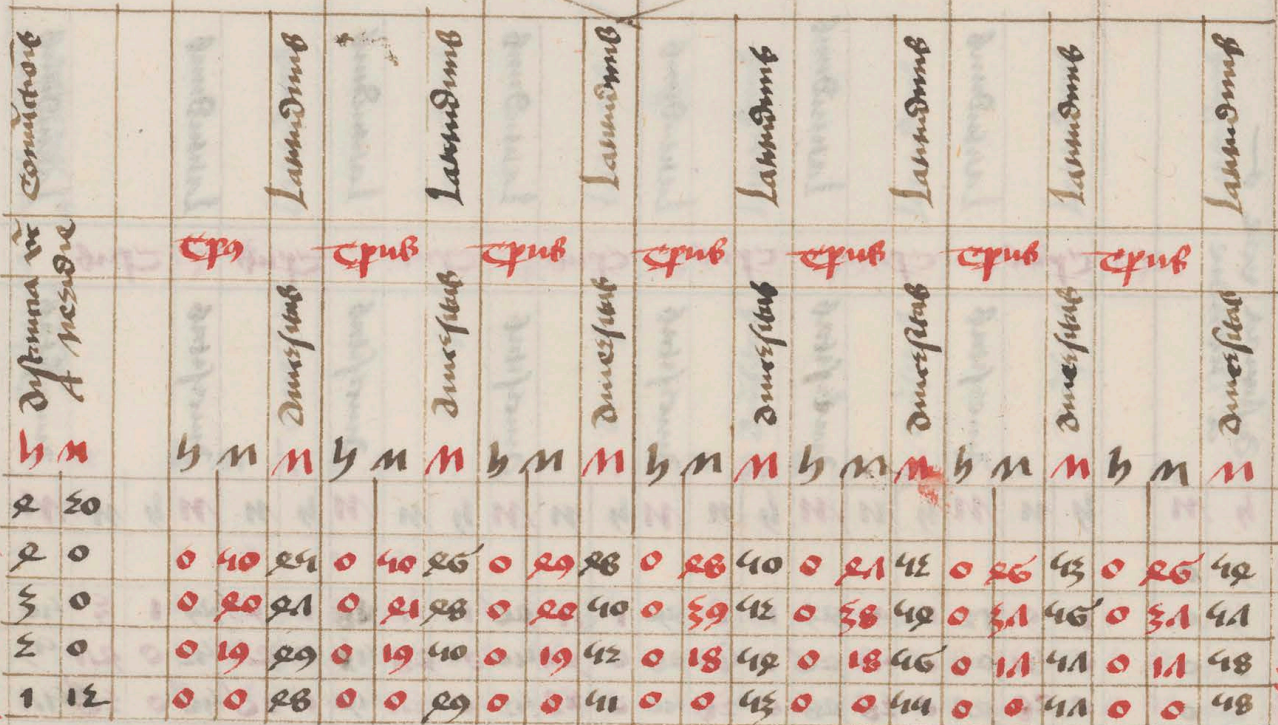 Latitudinis Latitudinis Latitudinis Latitudinis Latitudinis Latitudinis Latitudinis
Tp9 Tpus Tpus Tpus Tpus Tpus Tpus
diuersitas diuersitas diuersitas diuersitas diuersitas diuersitas diuersitas
h m h m m h m m h m m h m m h m m h m m h m m
4 30
4 0 0 50 45 0 50 46 0 49 48 0 48 50 0 47 52 0 46 53 0 46 54
3 0 0 40 47 0 41 48 0 40 50 0 39 52 0 38 54 0 37 56 0 37 57
2 0 0 19 49 0 19 50 0 19 52 0 18 54 0 18 56 0 17 57 0 17 58
1 12 0 0 48 0 0 49 0 0 51 0 0 53 0 0 55 0 0 57 0 0 58